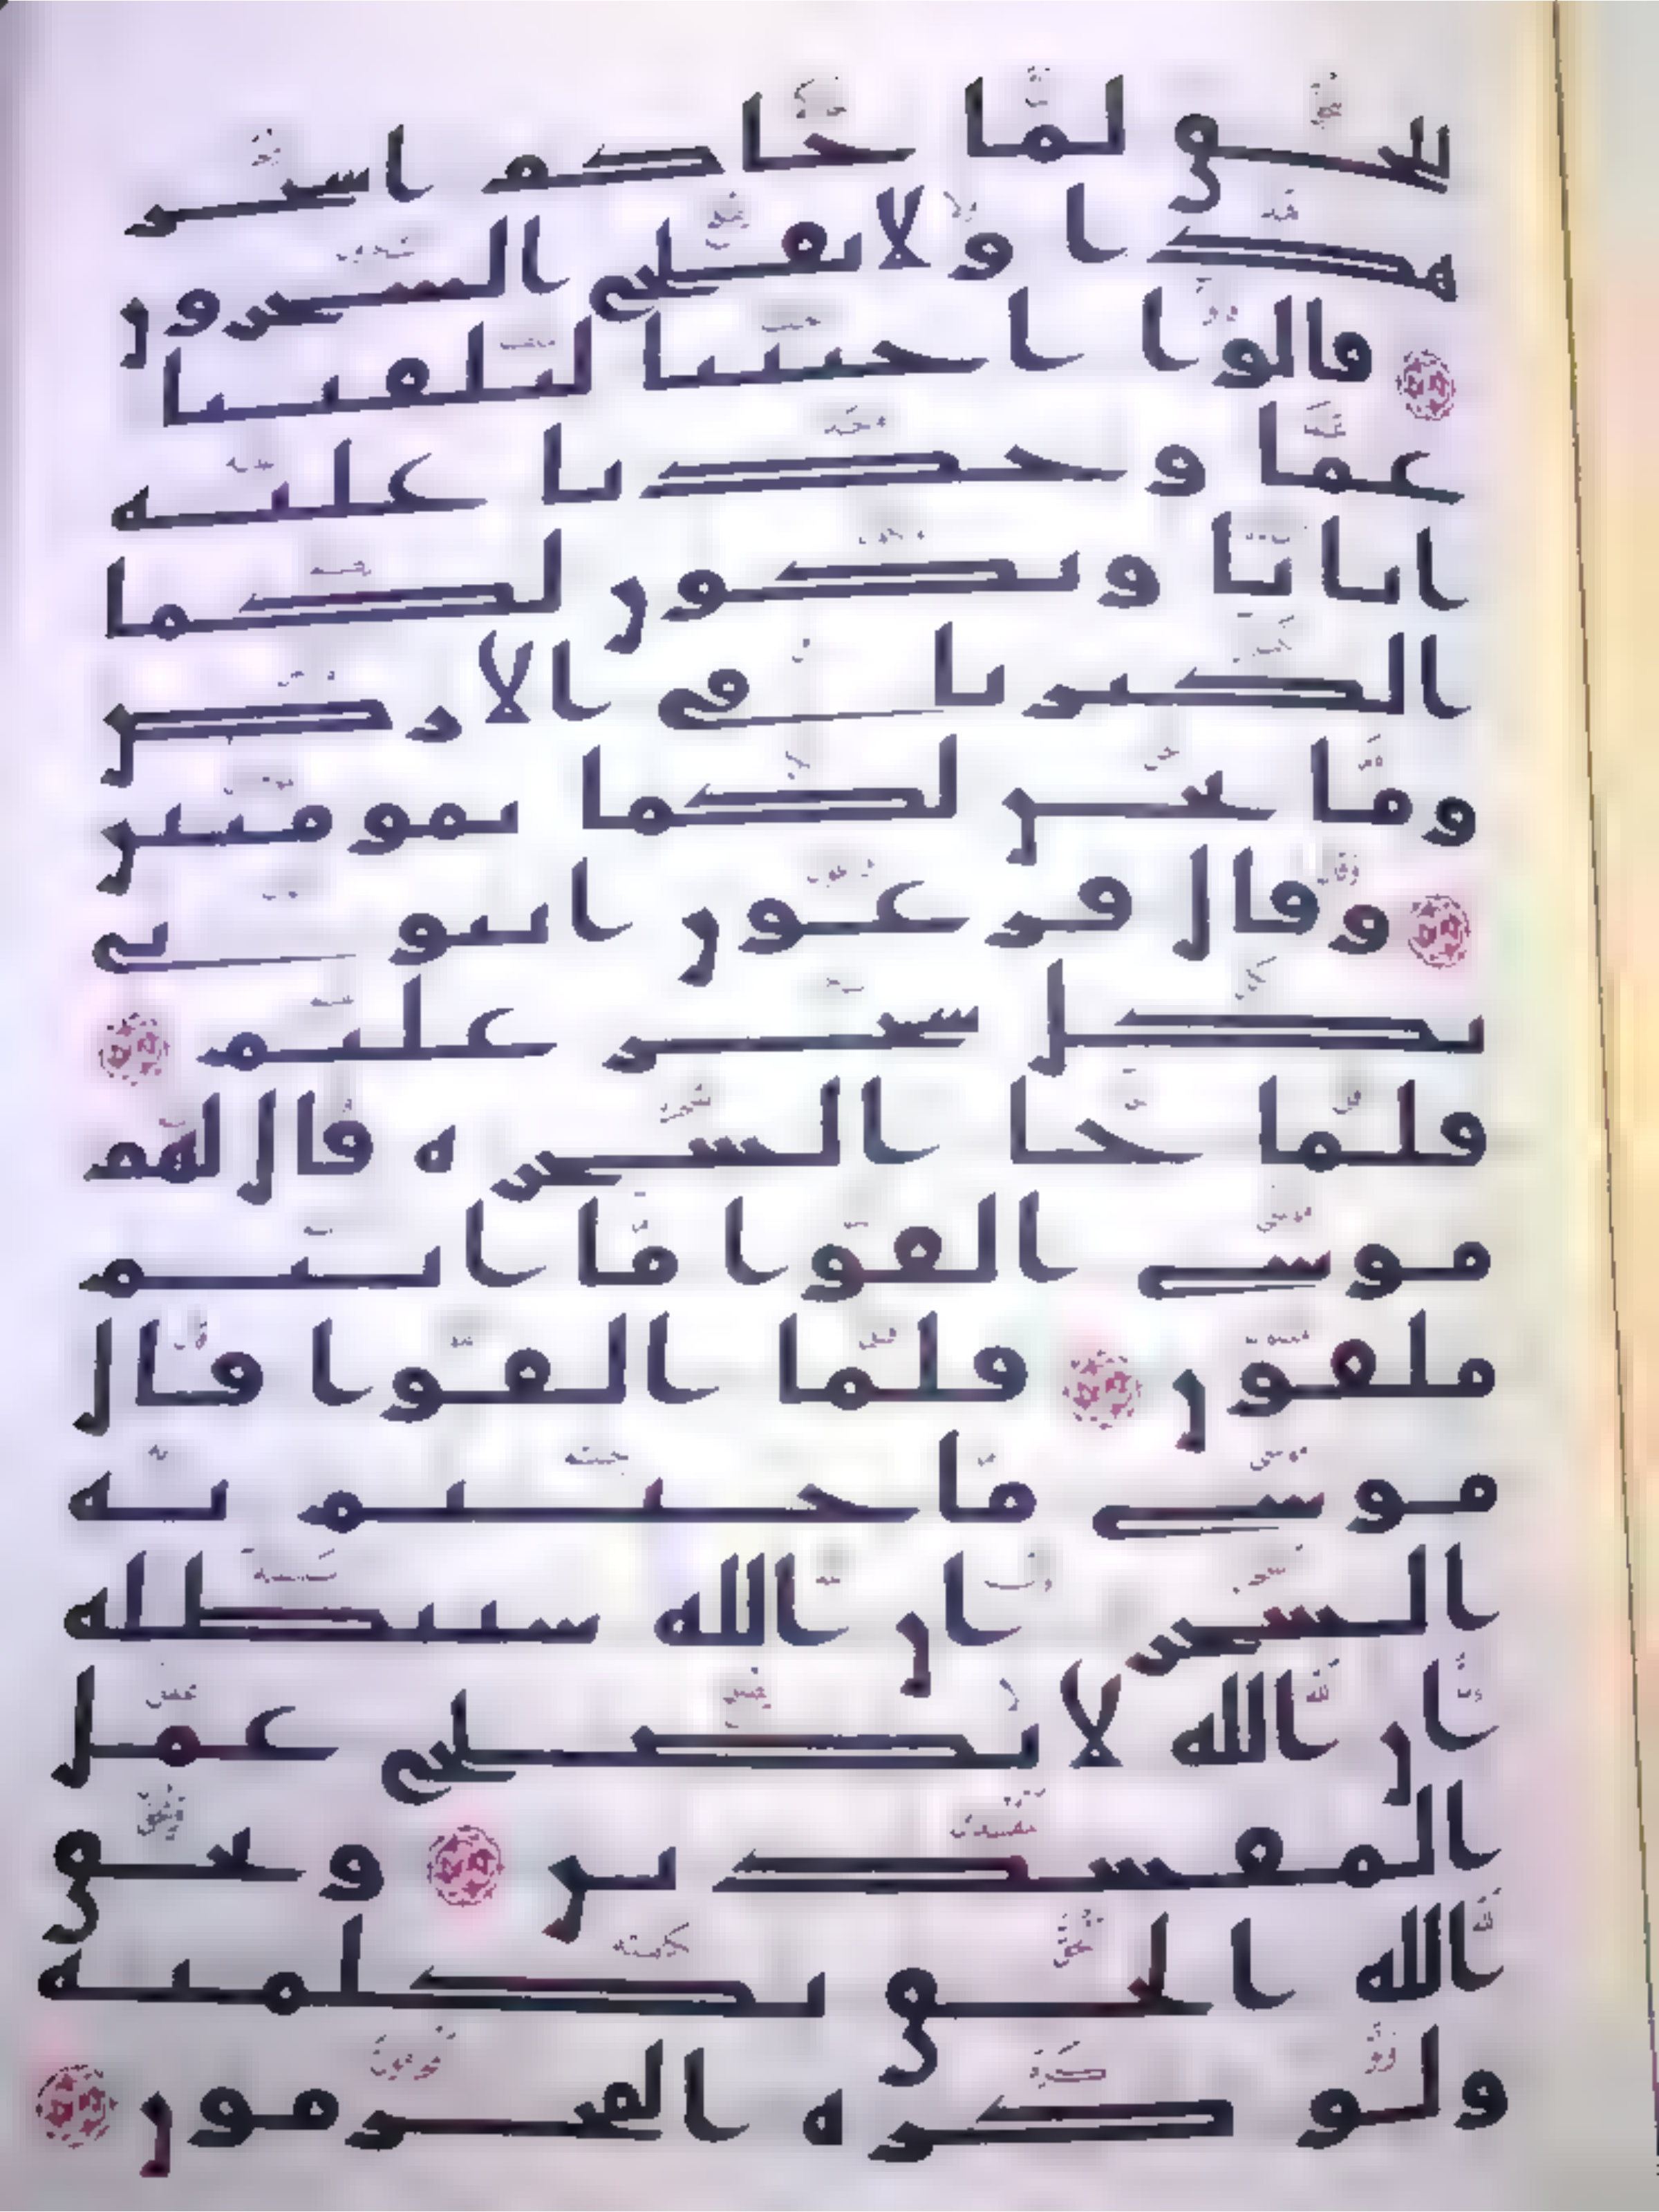 للحق لما جاكم اسحر
هذا ولا يفلح السحرون
قالوا اجيتنا لتلفتنا
عما وجدنا عليه
ابانا وتكون لكما
الكبريا في الارض
وما نحن لكما بمومنين
وقال فرعون ايتوني
بكل سحر عليم
فلما جا السحره قال لهم
موسى القوا ما انتم
ملقون فلما القوا قال
موسى ما جيتم به
السحر ان الله سيبطله
ان الله لا يصلح عمل
المفسدين ويحق
الله الحق بكلمته
ولو كره المجرمون